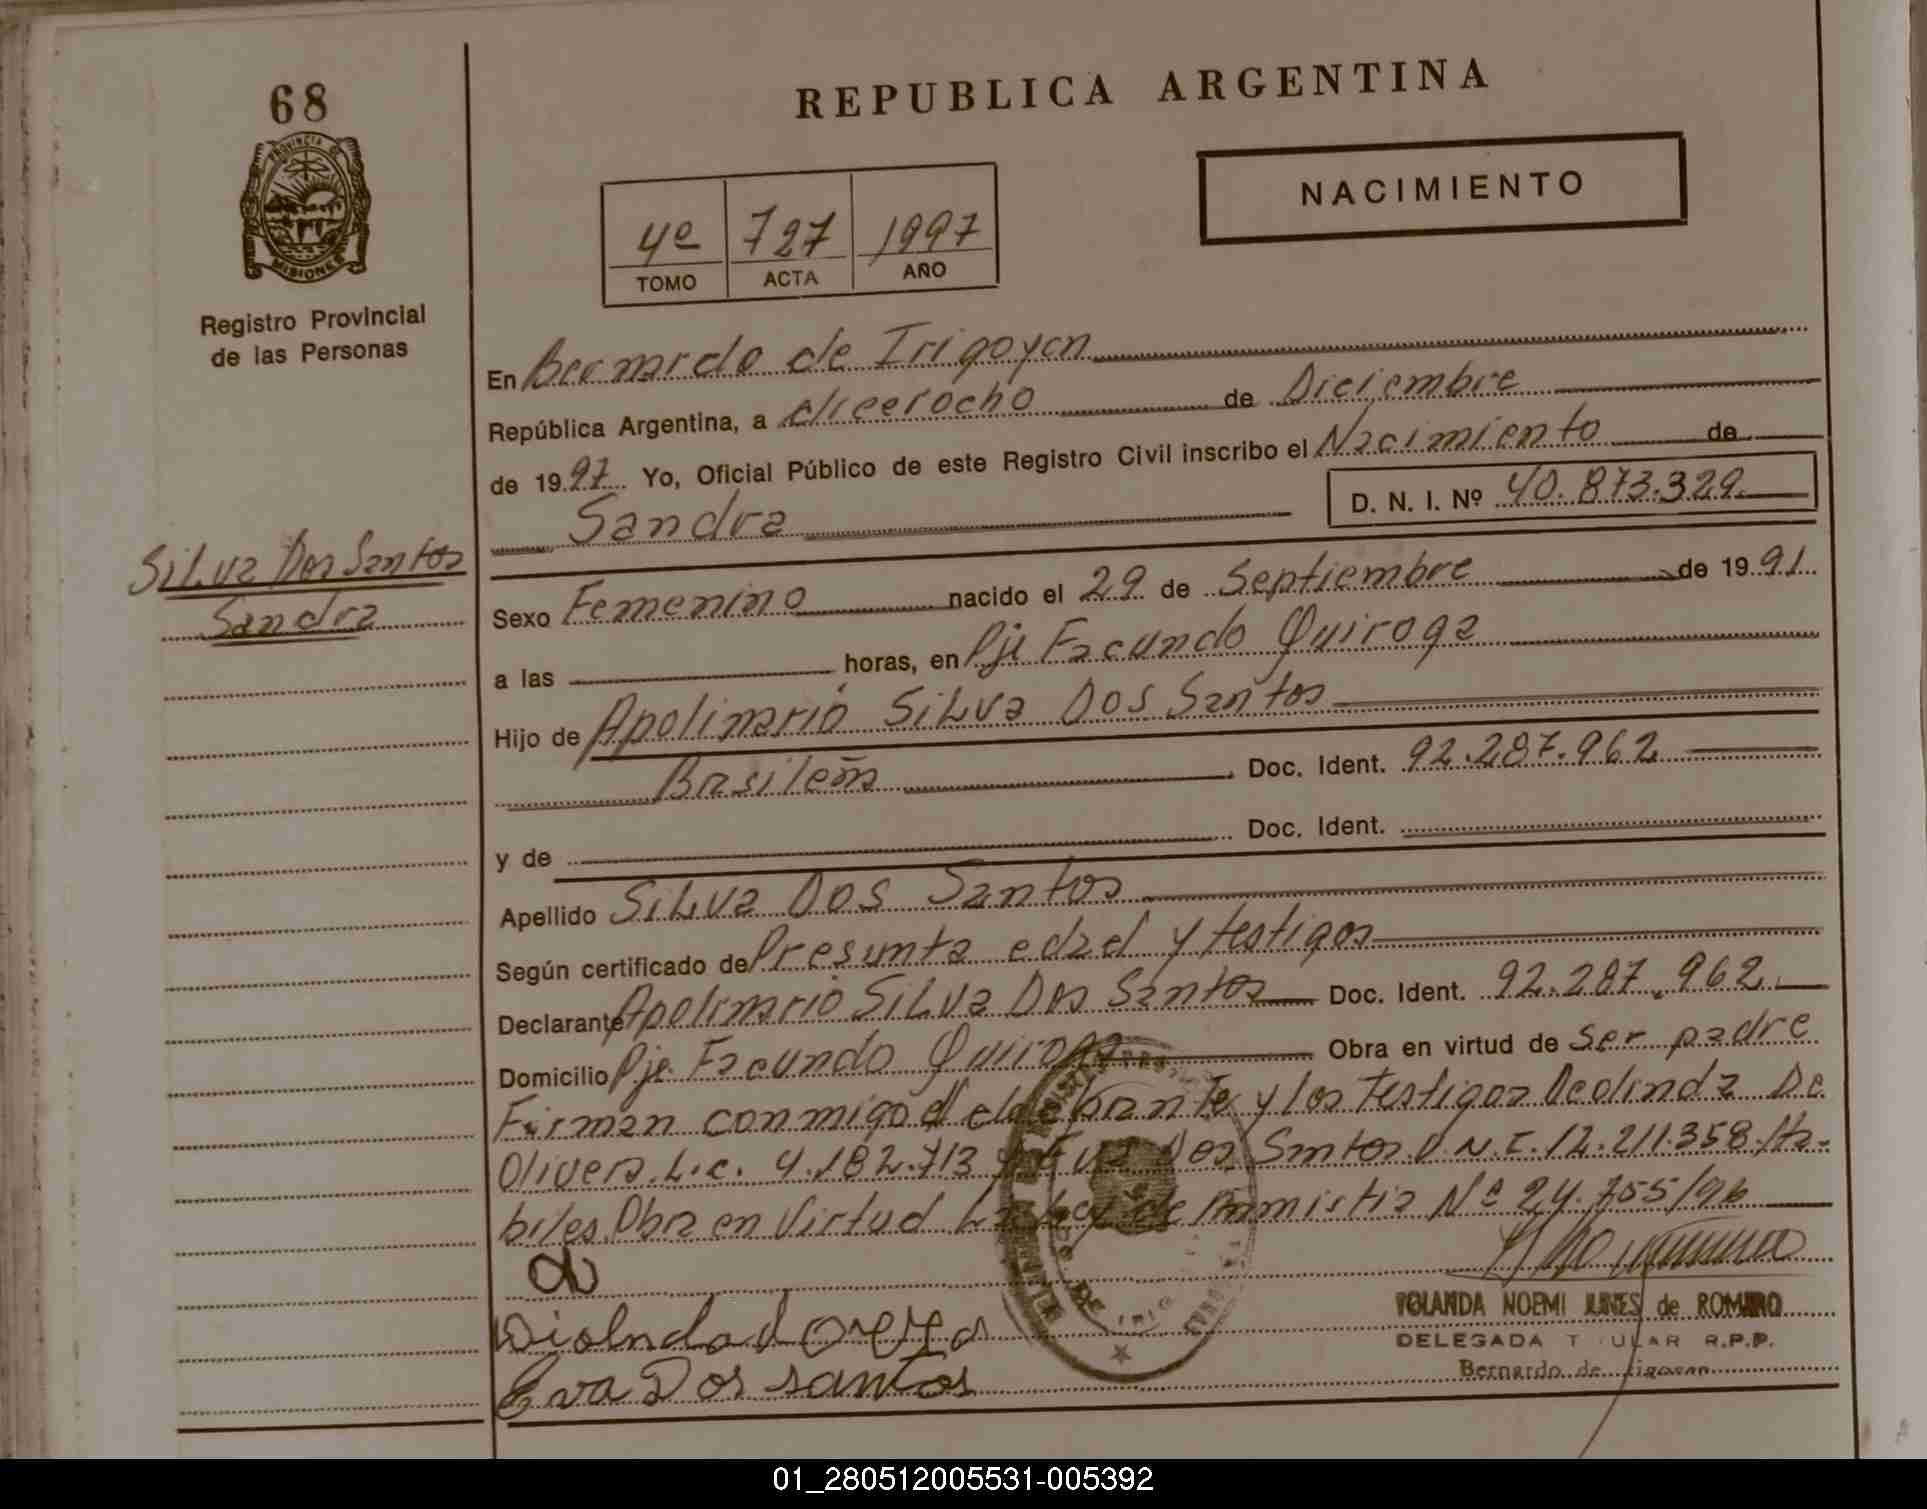 68
REPUBLICA ARGENTINA
PROVINCIA DE
MISIONES
NACIMIENTO
4º 727 1997
TOMO ACTA AÑO
Registro Provincial
de las Personas
En Bernardo de Irigoyen
República Argentina, a dieciocho de Diciembre
de 1997 Yo, Oficial Público de este Registro Civil inscribo el Nacimiento de
Sandra D. N. I. Nº 40.873.329
Silva Dos Santos
Sandra
Sexo Femenino nacido el 29 de Septiembre de 1991
a las horas, en Pje Facundo Quiroga
Hijo de Apolinario Silva Dos Santos
Brasileña Doc. Ident. 92.287.962
y de Doc. Ident.
Apellido Silva Dos Santos
Según certificado de Presunta edad y testigos
Declarante Apolinario Silva Dos Santos Doc. Ident. 92.287.962
Domicilio Pje. Facundo Quiroga Obra en virtud de ser padre
Firman conmigo el y los Testigos Deolinda De
Olivera L.c. 4.182.713 y Eva Dos Santos D.N.I. 12.211.358 Ha-
biles. Obra en Virtud Ley de Amnistia Nº 24.755/96
Eva Dos santos
YOLANDA NOEMI JUNES de ROMERO
DELEGADA TITULAR R.P.P.
Bernardo de Irigoyen
01_280512005531-005392